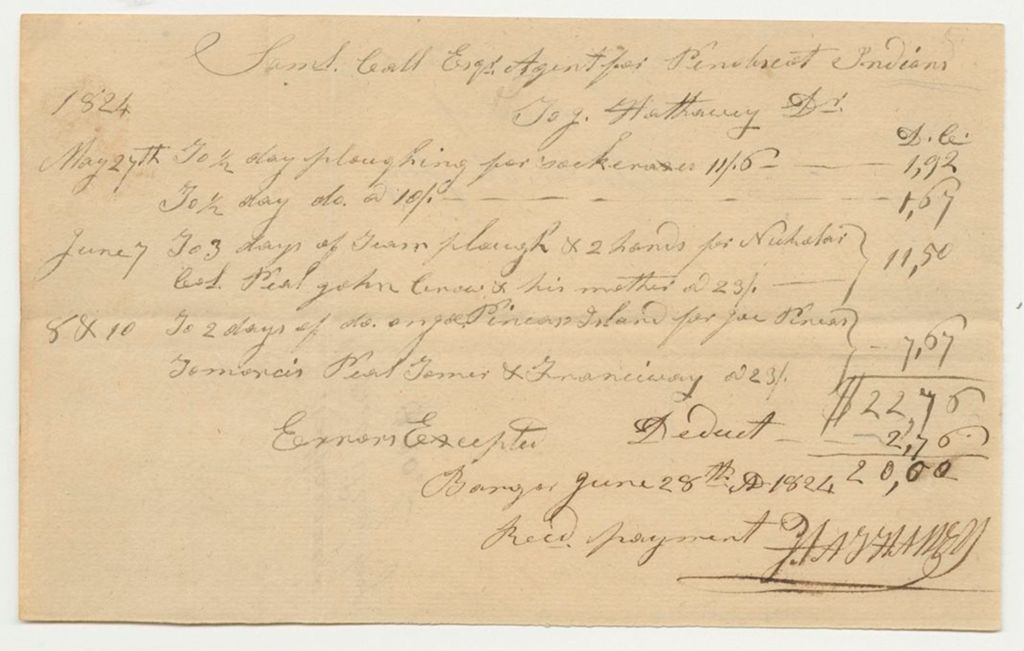 Saml. Call Esqr. Agent for Penobscot Indians
1824 To J. Hathaway Dr.
D. C.
May 27th To ½ day ploughing for sockeraxes 11/6 — 1,92
To ½ day do. @ 10/ — 1,67
June 7 To 3 days of Team plough & 2 hands for Nicholar
Col. Peal John Crow & his mother @ 23/. — 11,50
8 & 10 To 2 days of do. on Pineas Island for joe Pineas
Tomer & Franciway @ 23/. — 7,67
$22,76
Errors Excepted Deduct — 2,76
20,00
Bangor June 28th AD 1824
Recd. payment J. HATHAWAY